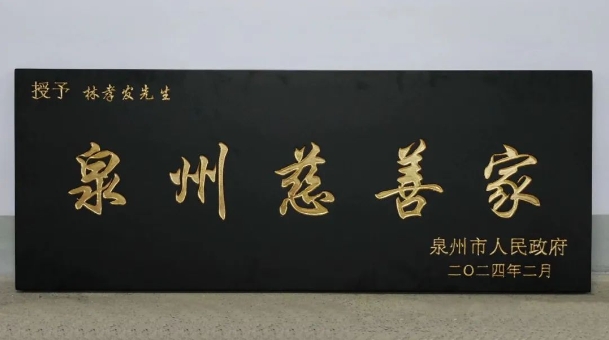 授予 林孝发先生
泉州慈善家
泉州市人民政府
二〇二四年二月